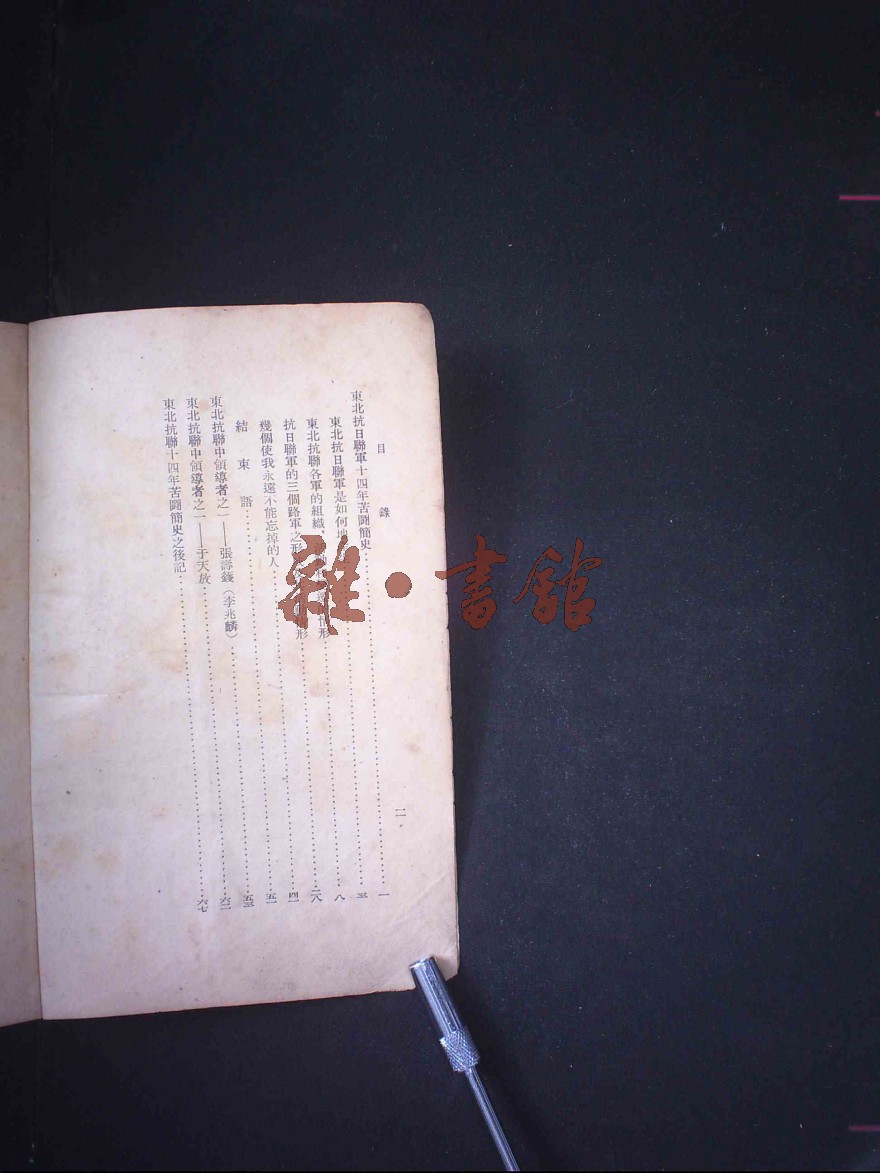 二
目錄
東北抗日聯軍十四年苦鬪簡史……一
東北抗日聯軍是如何地……三
東北抗聯各軍的組織,形……八
抗日聯軍的三個路軍之形形……二八
幾個使我永遠不能忘掉的人……四一
結束語……五一
東北抗聯中領導者之一——張壽籛(李兆麟)……五三
東北抗聯中領導者之一——于天放……六二
東北抗聯十四年苦鬪簡史之後記……六七
雜·書館